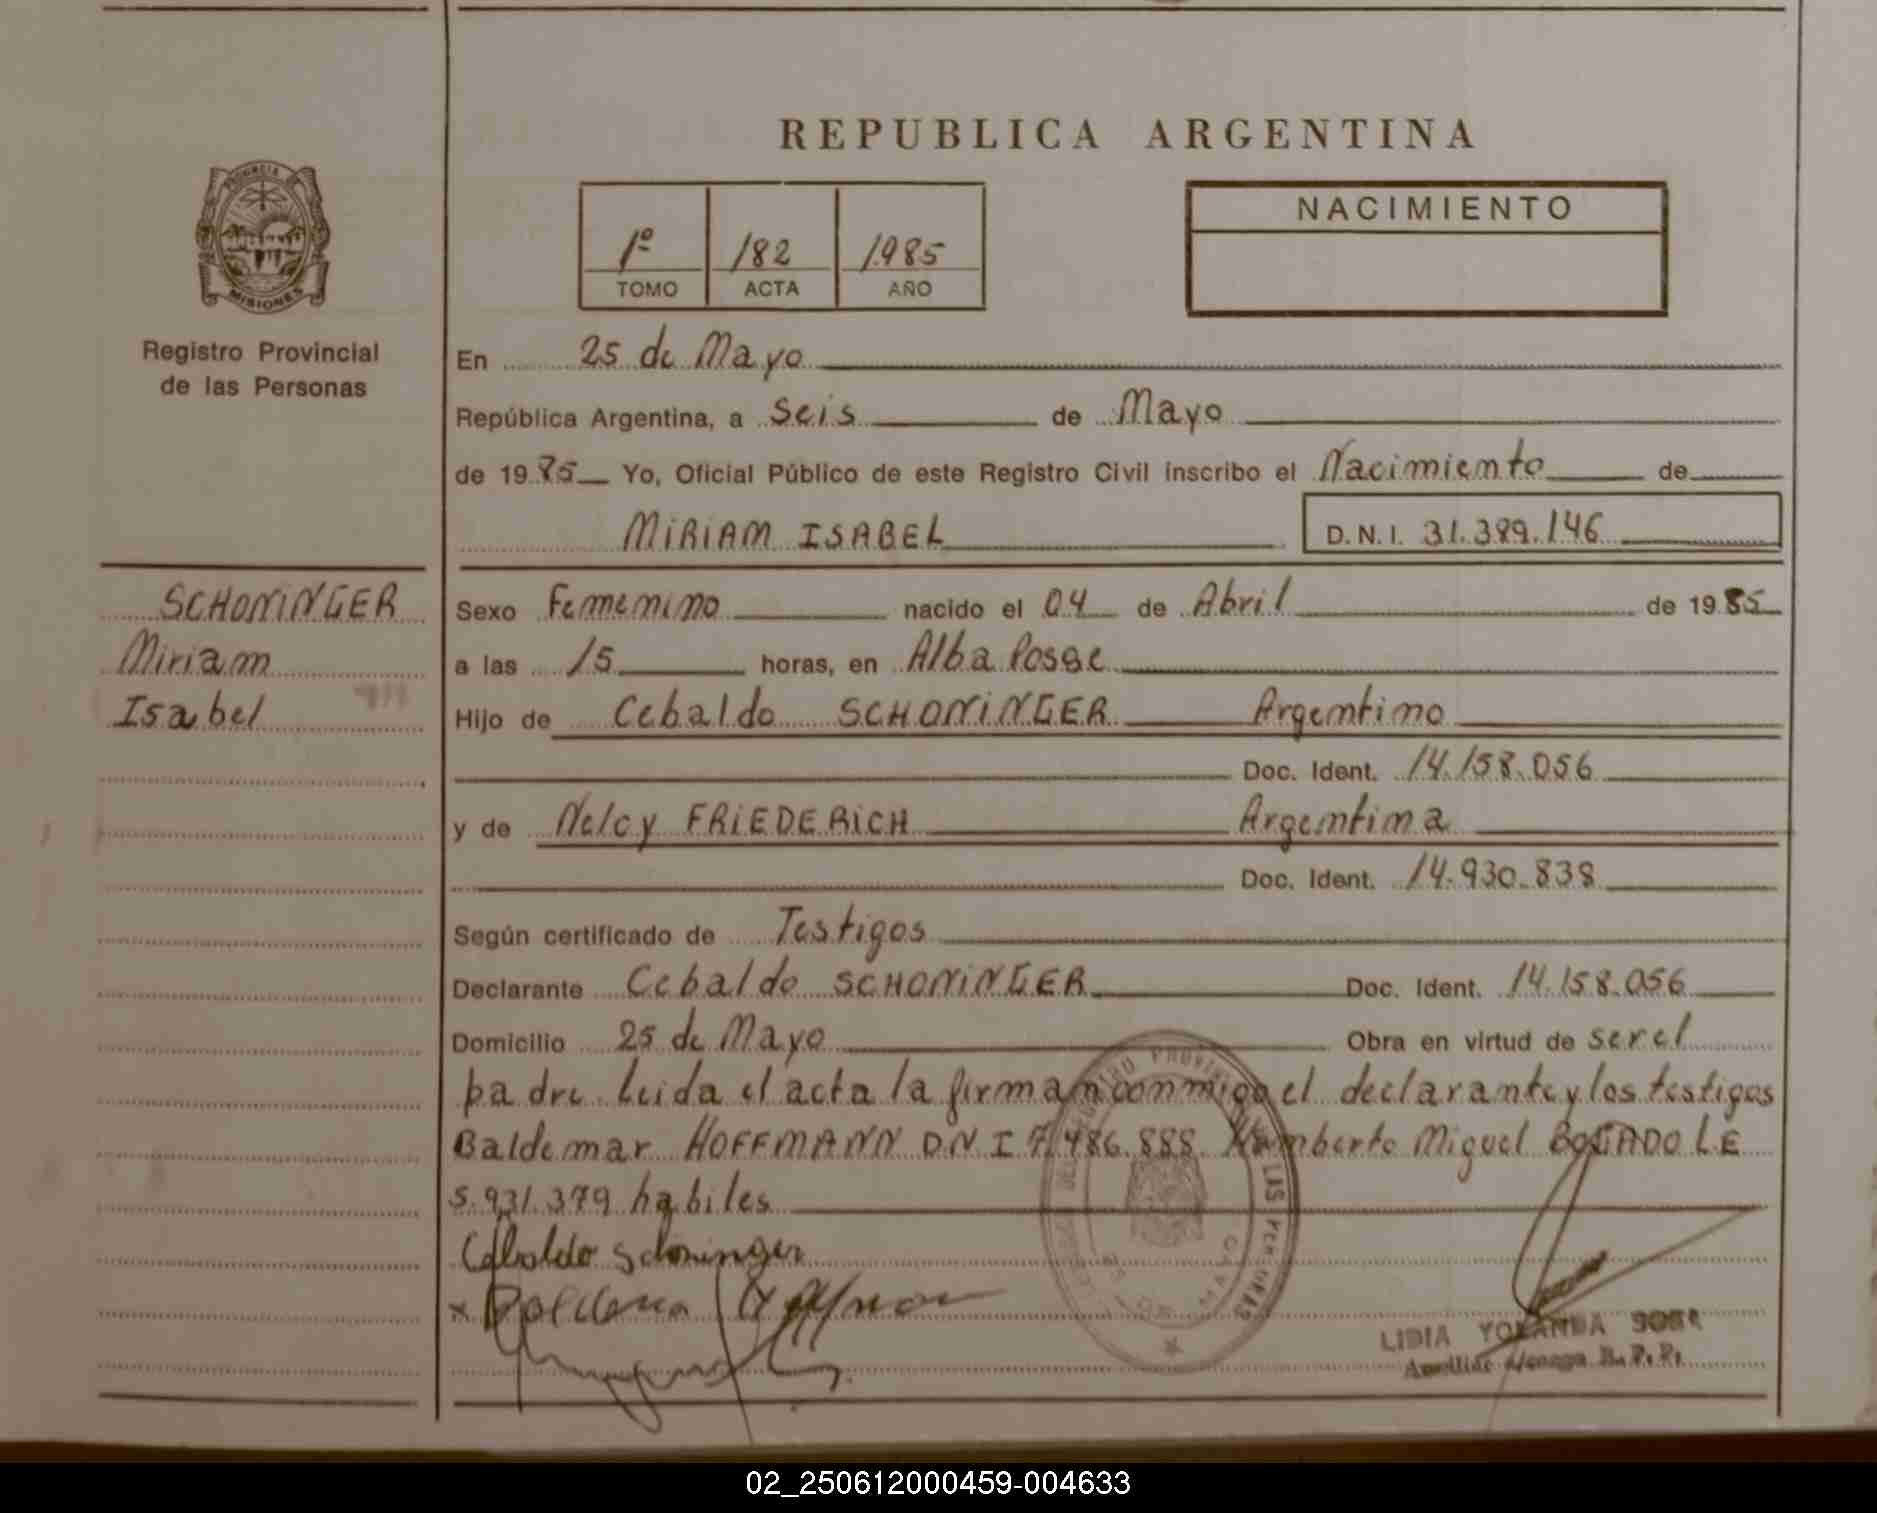 REPUBLICA ARGENTINA
PROVINCIA DE
MISIONES
Registro Provincial
de las Personas
1º 182 1985
TOMO ACTA AÑO
NACIMIENTO
En 25 de Mayo
República Argentina, a Seis de Mayo
de 1985 Yo, Oficial Público de este Registro Civil inscribo el Nacimiento de
MIRIAM ISABEL D.N.I. 31.389.146
SCHONINGER
Miriam
Isabel
Sexo Femenino nacido el 04 de Abril de 1985
a las 15 horas, en Alba Posse
Hijo de Cebaldo SCHONINGER Argentino
Doc. Ident. 14.158.056
y de Nelcy FRIEDERICH Argentina
Doc. Ident. 14.930.838
Según certificado de Testigos
Declarante Cebaldo SCHONINGER Doc. Ident. 14.158.056
Domicilio 25 de Mayo Obra en virtud de ser el
padre. Leida el acta la firman conmigo el declarante y los testigos
Baldemar HOFFMANN D.N.I 7.486.888. Humberto Miguel BOGADO L.E
5.931.379 habiles
Cebaldo Schoninger
LIDIA YOLANDA SOSA
02_250612000459-004633